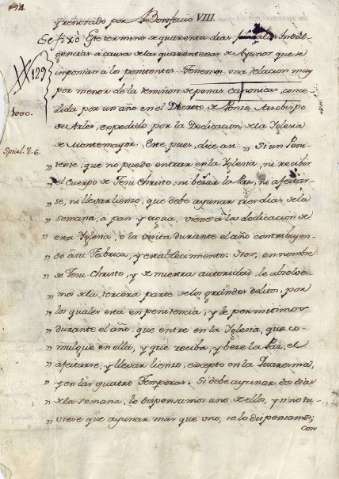 y renovado por Bonifacio VIII.
Se fixó este termino de quarenta dias Indul-
gencias à causa de las quarentenas de Ayunos que se
imponian à los penitentes. Tenemos una relacion muy
por menor de la remision de penas canonicas, conce-
dida por un año en el Decreto de Poncio Arzobispo
de Arles, expedido por la Dedicacion de la Iglesia
de Montemayor. Este pues, dice asi: Si un Peni-
" tente, que no puede entrar en la Iglesia, ni recibir
" el Cuerpo de Jesu Christo, ni besar la Paz, ni afeitar-
" se, ni llevar lienzo, que debe ayunar tres dias de la
" semana, à pan y agua, viene à la dedicacion de
" esta Iglesia, ò la visita durante el año contribuyen-
" do à su Fabrica, y establecimiento: Nos, en nombre
" de Jesu Christo, y de nuestra autoridad le absolve-
" mos de la tercera parte de los grandes delitos, por
" los quales està en penitencia, y le permitimos
" durante el año, que entre en la Iglesia, que co-
" mulgue en ella, y que reciba, y bese la Paz, el
" afeitarse, y llevar lienzo, excepto en la Quaresma,
" y en las quatro Temporas. Si debe ayunar dos dias
" de la semana, le dispensamos uno de ellos, y si no tu-
" viere que ayunar mas que uno, se lo dispensamos;
con
129
1000.
Spicil. t. 6.